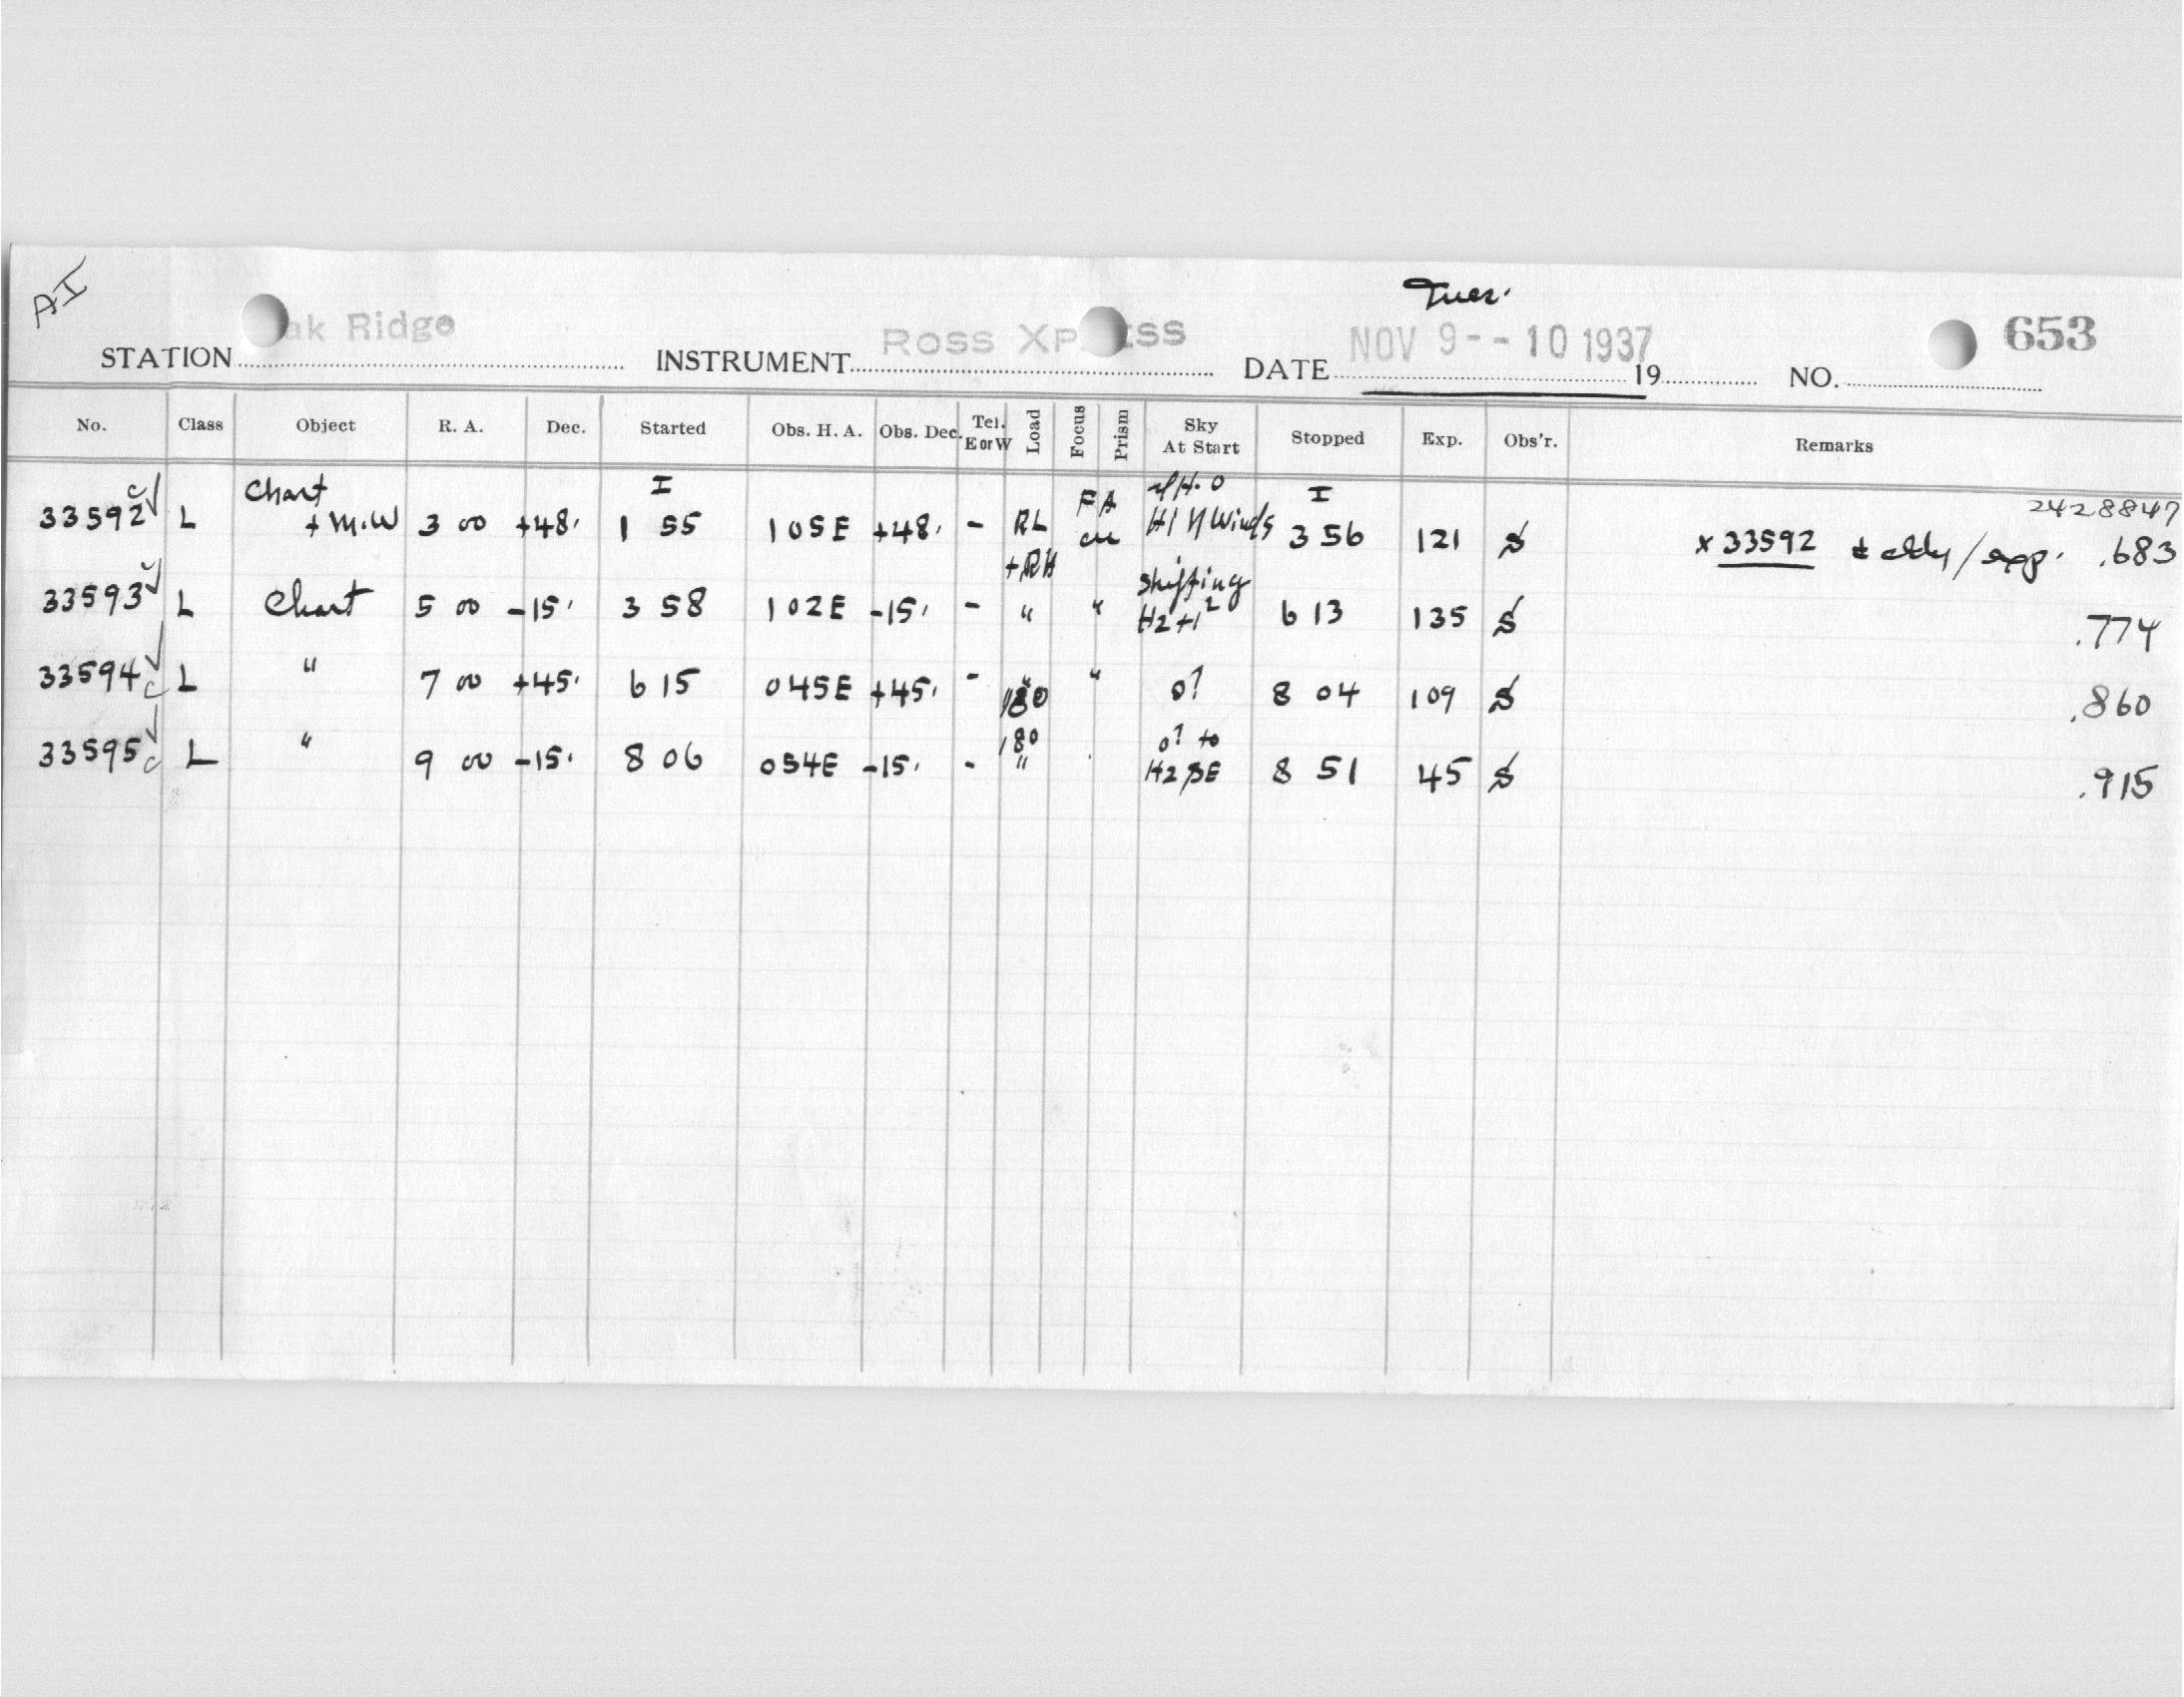 AI
Tues.
STATION ak Ridge INSTRUMENT Ross Xp ess DATE NOV 9--10 1937 19 NO. 653
No. Class Object R. A. Dec. Started Obs. H. A. Obs. Dec. Tel. E or W Load Focus Prism Sky At Start Stopped Exp. Obs'r. Remarks
Chart I FA I 2428847
33592 L + M.W 3 00 +48. 1 55 105E +48. - RL H1 N Winds 3 56 121 S x 33592 /exp. .683
+RH Shifting
33593 L Chart 5 00 -15. 3 58 102E -15. - " " H2 +1² 6 13 135 S .774
33594 L " 7 00 +45. 6 15 045E +45. - " " 0? 8 04 109 S .860
180
180 0? to
33595 L " 9 00 -15. 8 06 054E -15. - " H2 SE 8 51 45 S .915